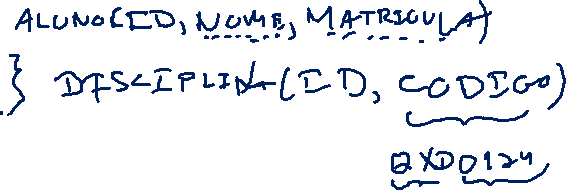 ALUNO(ID, NOME, MATRICULA)
} DISCIPLINA(ID, CODIGO)
QXD0124